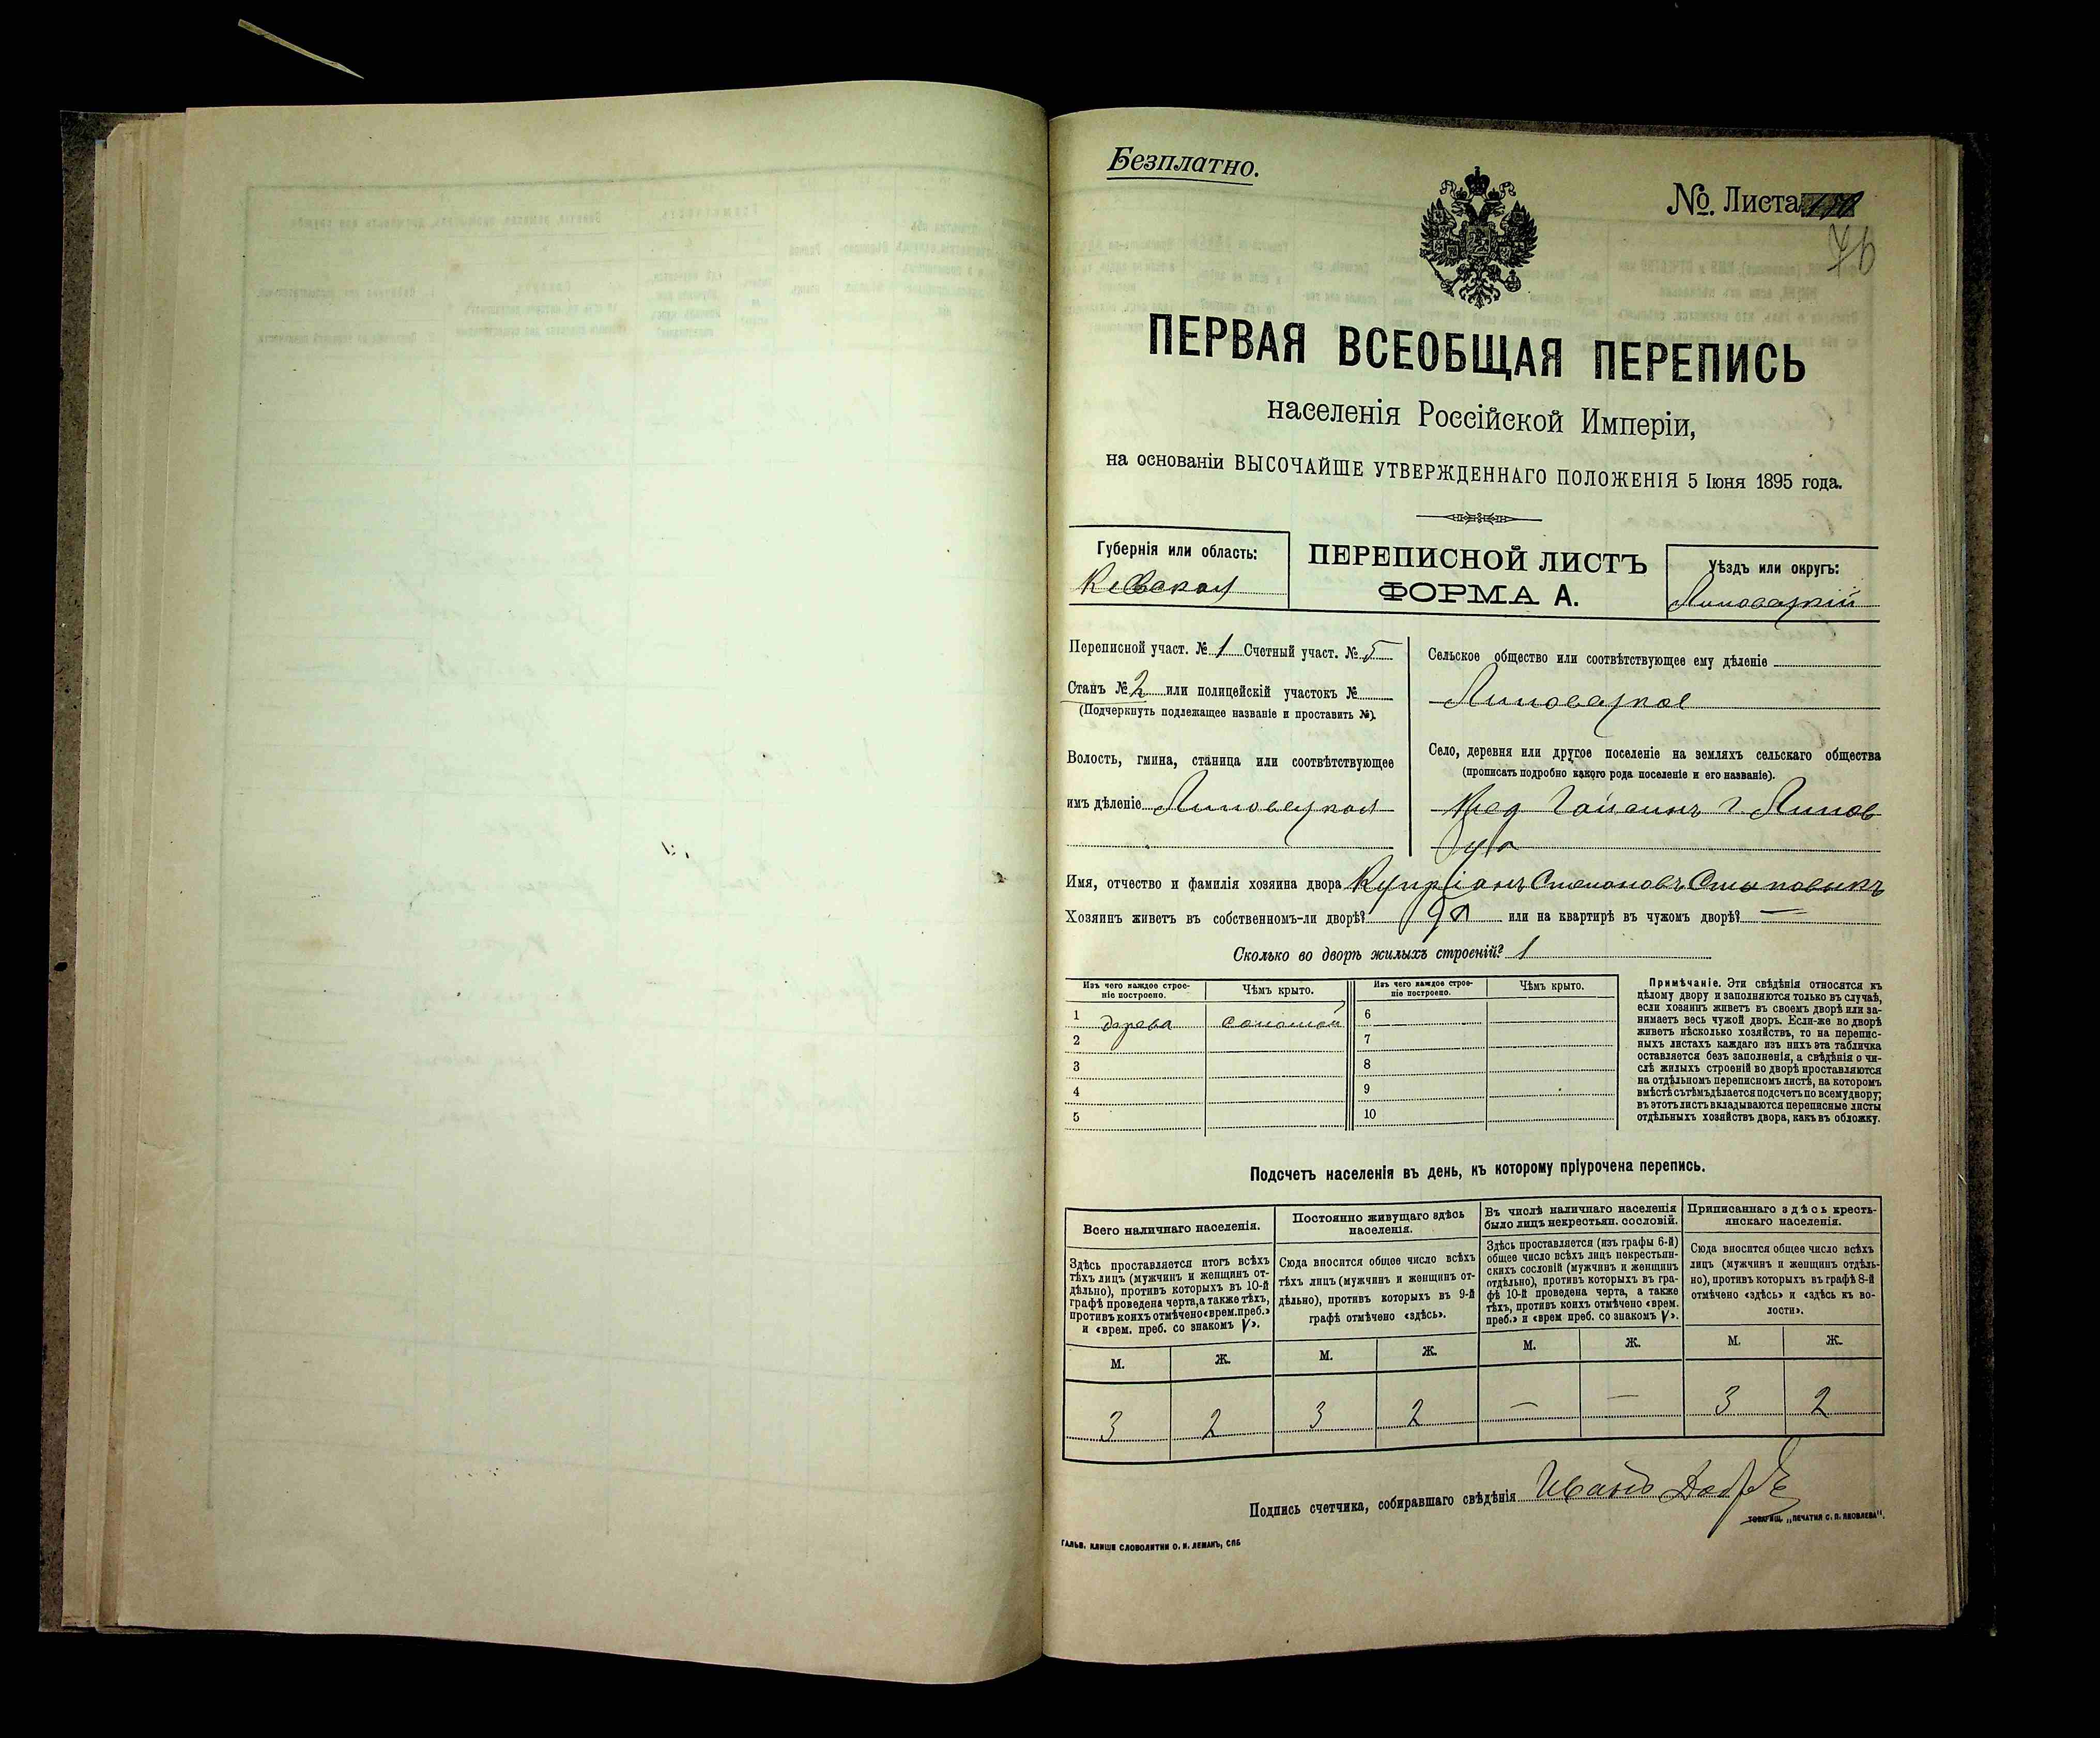 Безплатно.
№. Листа
76
ПЕРВАЯ ВСЕОБЩАЯ ПЕРЕПИСЬ
населенія Россійской Имперіи,
на основаніи ВЫСОЧАЙШЕ УТВЕРЖДЕННАГО ПОЛОЖЕНІЯ 5 Іюня 1895 года.
Губернія или область:
Кіевская
ПЕРЕПИСНОЙ ЛИСТЪ
ФОРМА А.
Уѣздъ или округъ:
Липовецкій
Переписной участ. № 1 Счетный участ. № 5
Станъ № 2 или полицейскій участокъ №
(Подчеркнуть подлежащее названіе и проставить №).
Волость, гмина, станица или соотвѣтствующее
имъ дѣленіе Липовецкая
Сельское общество или соотвѣтствующее ему дѣленіе
Липовецкое
Село, деревня или другое поселеніе на земляхъ сельскаго общества
(прописать подробно какого рода поселеніе и его названіе).
Пред г. Липов
Имя, отчество и фамилія хозяина двора Купріанъ Степановъ
Хозяинъ живетъ въ собственномъ-ли дворѣ? Да или на квартирѣ въ чужомъ дворѣ? —
Сколько во дворѣ жилыхъ строеній? 1
Изъ чего каждое строе-
ніе построено.
Чѣмъ крыто.
Изъ чего каждое строе-
ніе построено.
Чѣмъ крыто.
1 дерева соломой
2
3
4
5
6
7
8
9
10
Примѣчаніе. Эти свѣдѣнія относятся къ
цѣлому двору и заполняются только въ случаѣ,
если хозяинъ живетъ въ своемъ дворѣ или за-
нимаетъ весь чужой дворъ. Если-же во дворѣ
живетъ нѣсколько хозяйствъ, то на перепис-
ныхъ листахъ каждаго изъ нихъ эта табличка
оставляется безъ заполненія, а свѣдѣнія о чи-
слѣ жилыхъ строеній во дворѣ проставляются
на отдѣльномъ переписномъ листѣ, на которомъ
вмѣстѣ съ тѣмъ дѣлается подсчетъ по всему двору;
въ этотъ листъ вкладываются переписные листы
отдѣльныхъ хозяйствъ двора, какъ въ обложку.
Подсчетъ населенія въ день, къ которому пріурочена перепись.
Всего наличнаго населенія.
Здѣсь проставляется итогъ всѣхъ
тѣхъ лицъ (мужчинъ и женщинъ от-
дѣльно), противъ которыхъ въ 10-й
графѣ проведена черта, а также тѣхъ,
противъ коихъ отмѣчено «врем. преб.»
и «врем. преб. со знакомъ V».
Постоянно живущаго здѣсь
населенія.
Сюда вносится общее число всѣхъ
тѣхъ лицъ (мужчинъ и женщинъ от-
дѣльно), противъ которыхъ въ 9-й
графѣ отмѣчено «здѣсь».
Въ числѣ наличнаго населенія
было лицъ некрестьян. сословій.
Здѣсь проставляется (изъ графы 6-й)
общее число всѣхъ лицъ некрестьян-
скихъ сословій (мужчинъ и женщинъ
отдѣльно), противъ которыхъ въ гра-
фѣ 10-й проведена черта, а также
тѣхъ, противъ коихъ отмѣчено «врем.
преб.» и «врем преб. со знакомъ V».
Приписаннаго здѣсь кресть-
янскаго населенія.
Сюда вносится общее число всѣхъ
лицъ (мужчинъ и женщинъ отдѣль-
но), противъ которыхъ въ графѣ 8-й
отмѣчено «здѣсь» и «здѣсь къ во-
лости».
М. Ж. М. Ж. М. Ж. М. Ж.
3 2 3 2 — — 3 2
Подпись счетчика, собиравшаго свѣдѣнія Иванъ
ТОВАРИЩ. „ПЕЧАТНЯ С. П. ЯКОВЛЕВА".
ГАЛЬВ. КЛИШЕ СЛОВОЛИТНИ О. И. ЛЕМАНЪ, СПБ